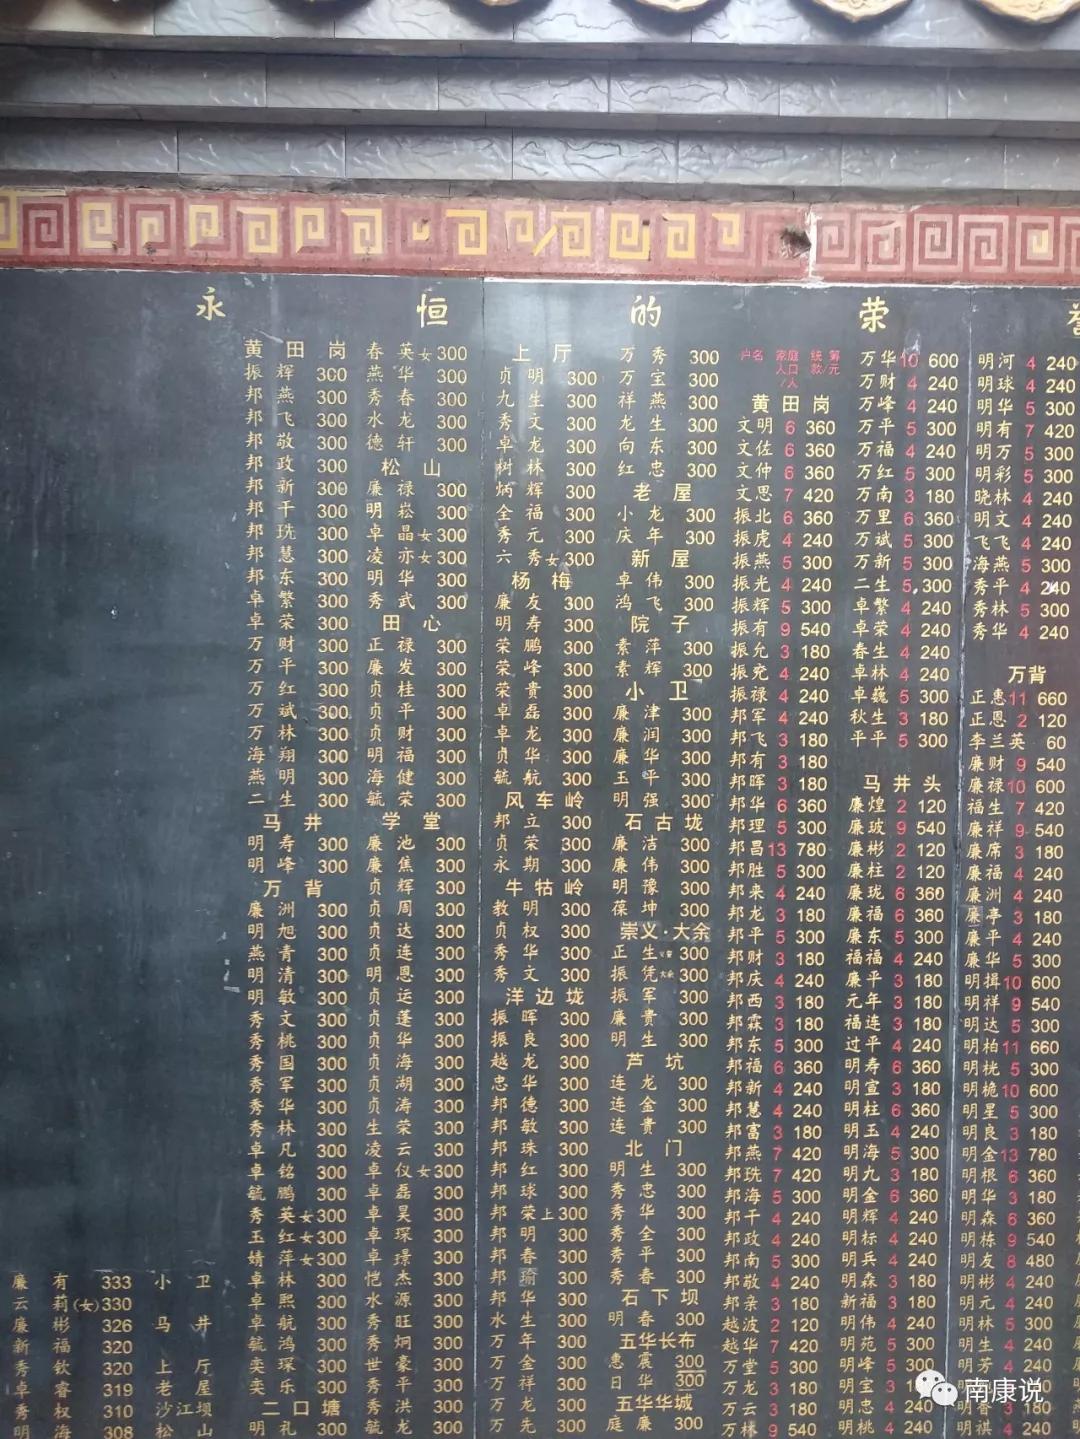 永恒的荣誉
廉有 333 小卫
云莉(女)330
廉彬 326 马井
新福 320
秀钦 320 上厅
卓睿 319 老屋
秀权 310 沙江坝
明海 308 松山
黄田岗
振辉 300
邦燕 300
邦飞 300
邦敬 300
邦政 300
邦新 300
邦干 300
邦珗 300
邦慧 300
邦东 300
卓繁 300
卓荣 300
万财 300
万平 300
万红 300
万斌 300
万林 300
海翔 300
燕明 300
二生 300
马井
明寿 300
明峰 300
万背
廉洲 300
明旭 300
燕青 300
明清 300
明敏 300
秀文 300
秀桃 300
秀国 300
秀军 300
秀华 300
秀林 300
卓凡 300
卓铭 300
毓鹏 300
秀英女300
玉红女300
婧萍女300
卓林 300
卓熙 300
卓航 300
毓鸿 300
奕琛 300
奕乐 300
二口塘
明礼 300
春英女300
燕华 300
秀春 300
水龙 300
德轩 300
松山
廉禄 300
明崧 300
卓晶女300
凌亦女300
明华 300
秀武 300
田心
正禄 300
廉发 300
贞桂 300
贞平 300
贞财 300
明福 300
海健 300
毓荣 300
学堂
廉池 300
廉焦 300
贞辉 300
贞周 300
贞达 300
贞连 300
明恩 300
贞运 300
贞蓬 300
贞华 300
贞海 300
贞湖 300
贞涛 300
生荣 300
凌云 300
卓仪女300
卓磊 300
卓昊 300
卓琛 300
卓璟 300
恺杰 300
水源 300
秀旺 300
秀炯 300
世豪 300
秀平 300
秀洪 300
毓龙 300
上厅
贞明 300
九生 300
秀文 300
卓龙 300
树林 300
炳辉 300
全福 300
秀元 300
六秀女300
杨梅
廉友 300
明寿 300
荣鹏 300
荣峰 300
荣贵 300
卓磊 300
卓龙 300
贞华 300
毓航 300
风车岭
邦立 300
贞荣 300
永期 300
牛牯岭
教明 300
贞权 300
秀华 300
秀文 300
洋边垅
振晖 300
振良 300
越龙 300
忠华 300
邦德 300
邦敏 300
邦珠 300
邦红 300
邦球 300
邦荣上300
邦明 300
邦春 300
邦瑜 300
邦华 300
水生 300
万年 300
万金 300
万祥 300
万龙 300
万先 300
万秀 300
万宝 300
祥燕 300
龙生 300
向东 300
红忠 300
老屋
小龙 300
庆年 300
新屋
卓伟 300
鸿飞 300
院子
素萍 300
素辉 300
小卫
廉津 300
廉润 300
廉华 300
玉平 300
明强 300
石古垅
廉洁 300
廉伟 300
明豫 300
葆坤 300
崇义·大余
正生 300
振凭 300
振军 300
廉贵 300
明生 300
芦坑
连龙 300
连金 300
连贵 300
北门
明生 300
秀忠 300
秀华 300
秀全 300
秀平 300
秀春 300
石下坝
明春 300
五华长布
惠震 300
日华 300
五华华城
庭廉 300
户名 家庭人口/人 统筹款/元
黄田岗
文明 6 360
文佐 6 360
文仲 6 360
文思 7 420
振北 6 360
振虎 4 240
振燕 5 300
振光 4 240
振辉 5 300
振有 9 540
振允 3 180
振兖 4 240
振禄 4 240
邦军 4 240
邦飞 3 180
邦有 3 180
邦晖 3 180
邦华 6 360
邦理 5 300
邦昌 13 780
邦胜 5 300
邦来 4 240
邦龙 3 180
邦平 5 300
邦财 3 180
邦庆 4 240
邦西 3 180
邦霖 3 180
邦东 5 300
邦福 6 360
邦新 4 240
邦慧 4 240
邦富 3 180
邦燕 7 420
邦珗 7 420
邦海 5 300
邦干 4 240
邦政 4 240
邦南 5 300
邦敬 4 240
邦亲 3 180
越波 2 120
越华 7 420
万堂 5 300
万龙 3 180
万云 3 180
万林 9 540
万华 10 600
万财 4 240
万峰 4 240
万平 5 300
万福 4 240
万红 5 300
万南 3 180
万里 6 360
万斌 5 300
万新 5 300
二生 5 300
卓繁 4 240
卓荣 4 240
春生 4 240
卓林 4 240
卓巍 5 300
秋生 3 180
平平 5 300
马井头
廉煌 2 120
廉玻 9 540
廉彬 2 120
廉柱 2 120
廉珑 6 360
廉福 6 360
廉东 5 300
福福 4 240
廉平 3 180
元年 3 180
福连 3 180
过平 4 240
明寿 6 360
明宣 3 180
明柱 6 360
明玉 4 240
明海 5 300
明九 3 180
明金 6 360
明辉 4 240
明标 4 240
明兵 4 240
明森 3 180
新福 3 180
明伟 4 240
明苑 5 300
明峰 5 300
明宝 3 180
明忠 4 240
明桃 4 240
明河 4 240
明球 4 240
明华 5 300
明有 7 420
明万 5 300
明彩 5 300
晓林 4 240
明文 4 240
飞飞 4 240
海燕 5 300
秀平 4 240
秀林 5 300
秀华 4 240
万背
正惠 11 660
正恩 2 120
李兰英 60
廉财 9 540
廉禄 10 600
福生 7 420
廉祥 9 540
廉席 3 180
廉福 4 240
廉洲 4 240
廉亭 3 180
廉平 4 240
廉华 5 300
明揖 10 600
明祥 9 540
明达 5 300
明柏 11 660
明桃 5 300
明桅 10 600
明星 5 300
明良 3 180
明金 13 780
明根 6 360
明华 3 180
明森 6 360
明栋 9 540
明友 8 480
明彬 4 240
明元 4 240
明林 5 300
明生 4 240
明芳 4 240
明香 3 180
明祺 4 240
南康说